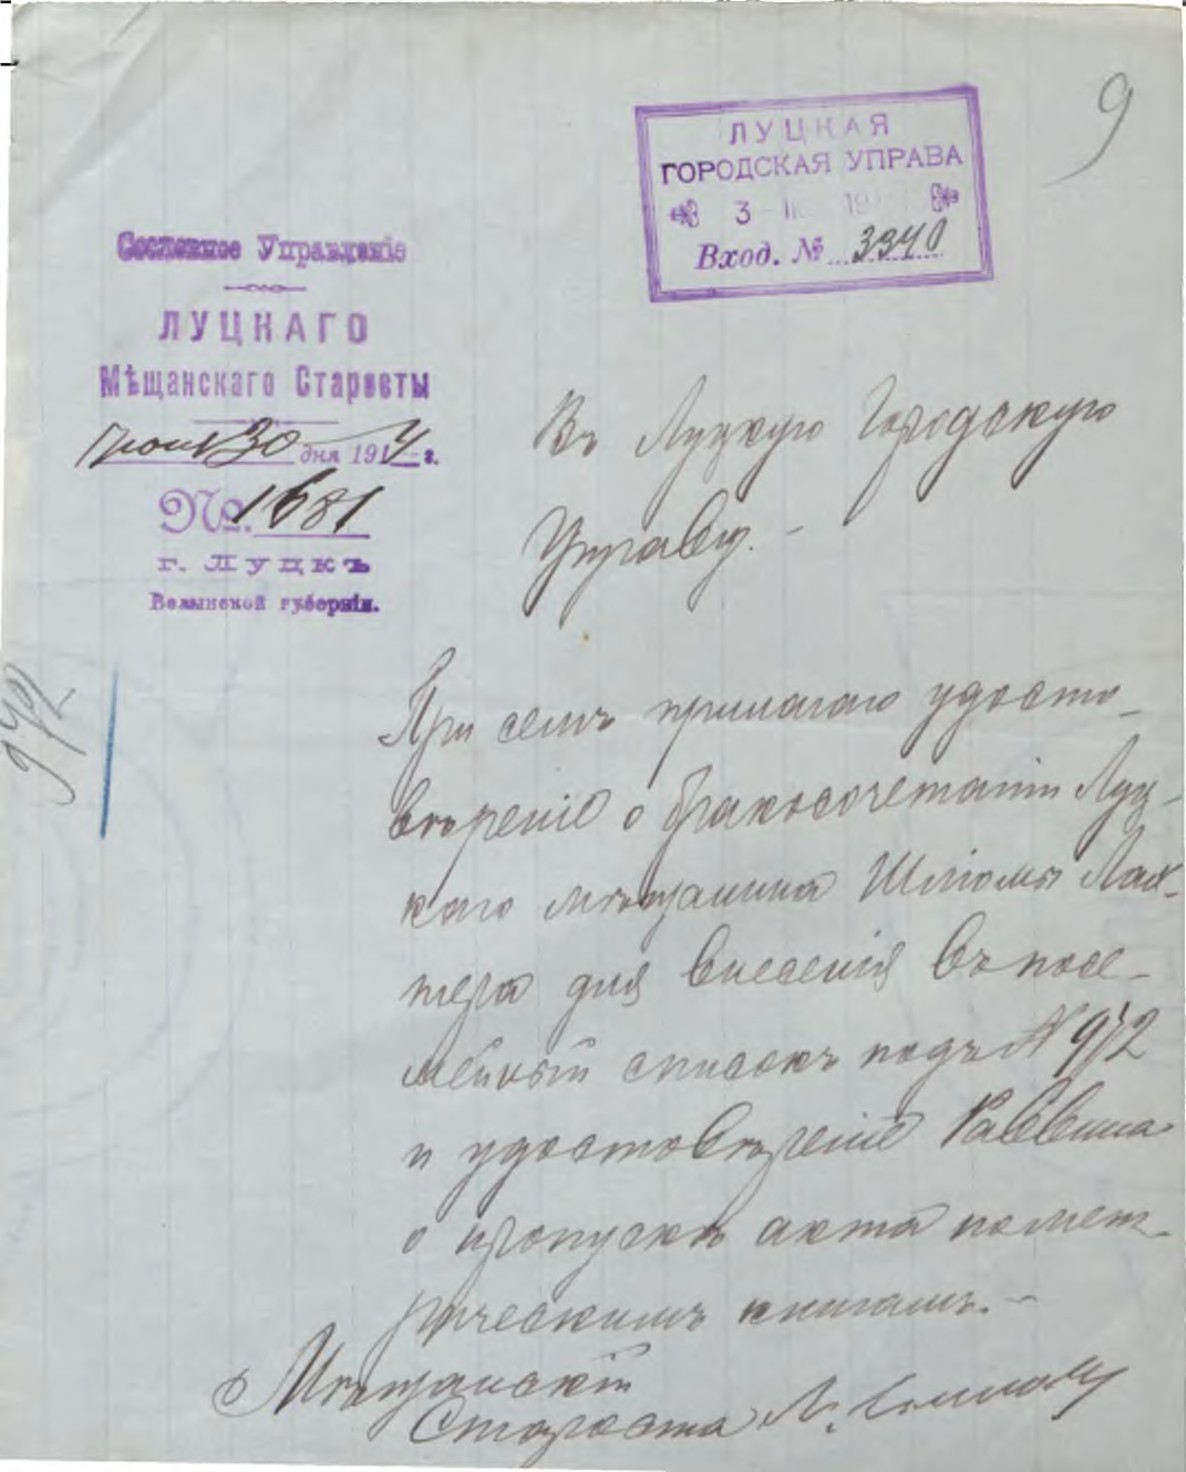 9
ЛУЦКАЯ
ГОРОДСКАЯ УПРАВА
3
Вход. № 3340
Сословное Управленіе
ЛУЦКАГО
Мѣщанскаго Старосты
30 дня 1914 г.
№ 1681
г. Луцкъ
Волынской губерніи.
Въ Луцкую Городскую
Управу. -
При семъ прилагаю удосто-
вѣреніе о бракосочетаніи Луц-
каго мѣщанина Шліомы
для внесенія въ посе-
мейный списокъ подъ N 972
и удостовѣреніе Раввина
о пропускѣ акта по мет-
рическимъ книгамъ. -
Мѣщанскій
Староста